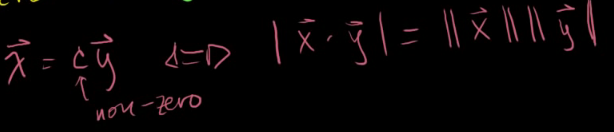 x⃗ = cy⃗ <=> | x⃗ · y⃗ | = ‖ x⃗ ‖ ‖ y⃗ ‖
↑
non-zero